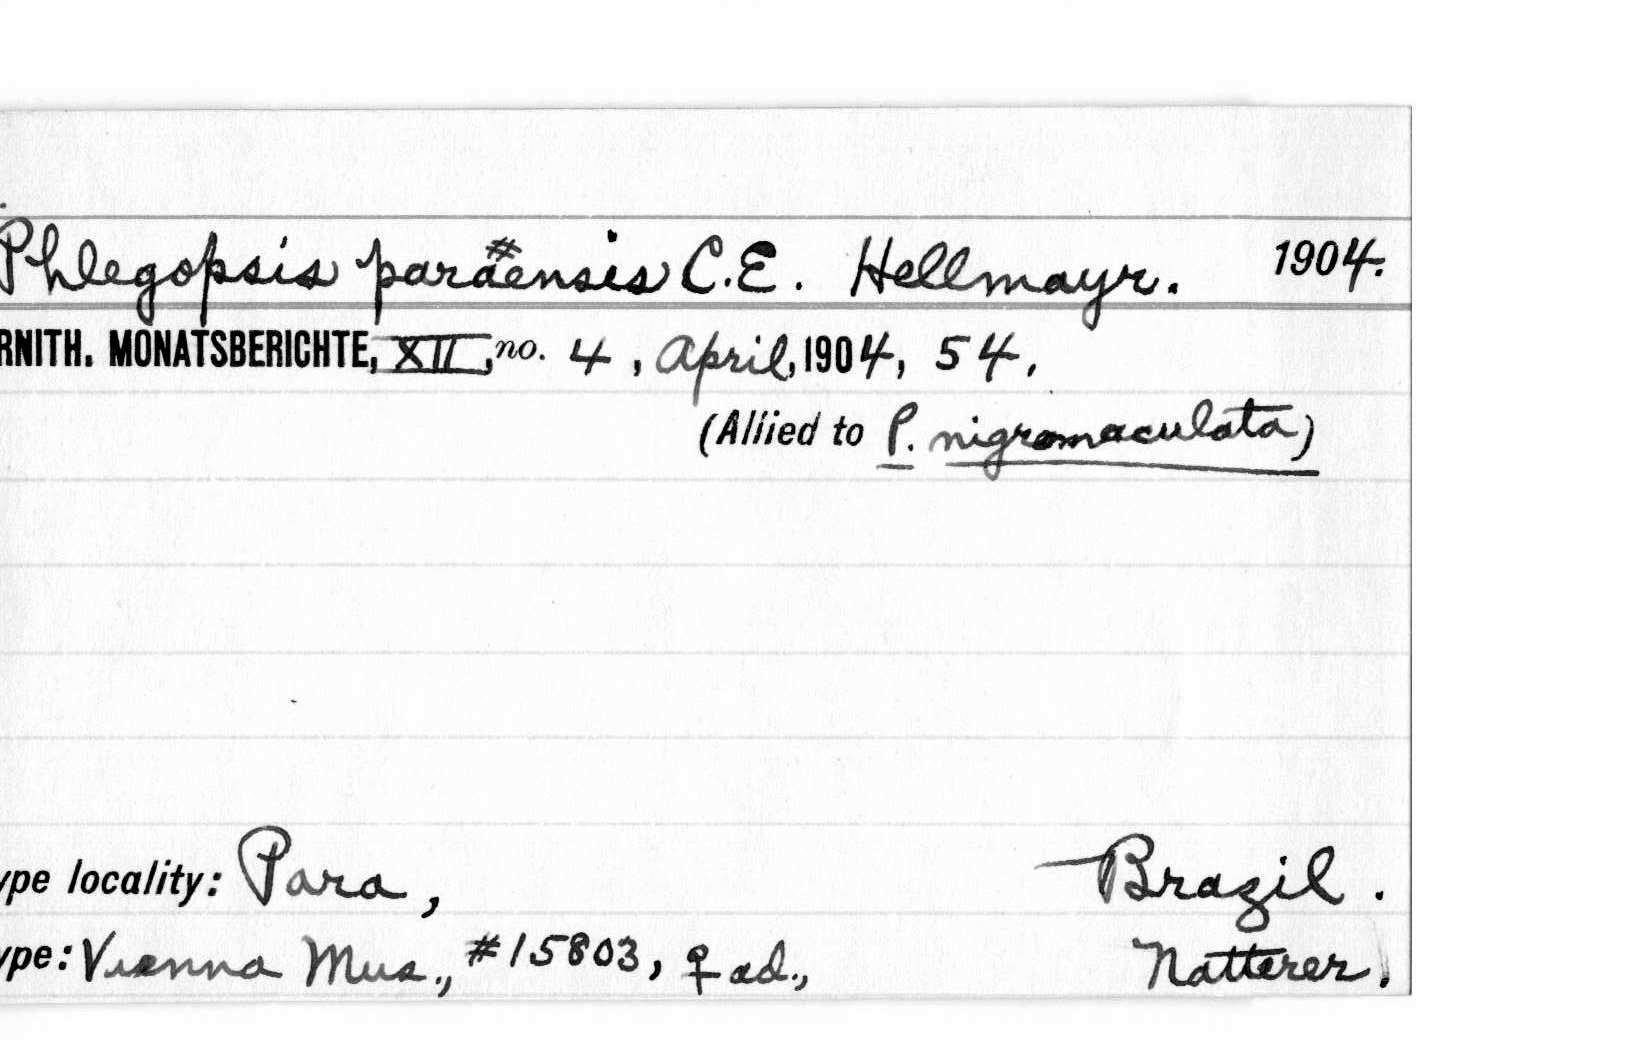 Phlegopsis paraensis C.E. Hellmayr. 1904.
RNITH. MONATSBERICHTE, XII, no. 4, April, 1904, 54,
(Allied to P. nigromaculata)
ype locality: Para, Brazil.
ype: Vienna Mus., #15803, ♀ ad., Natterer.